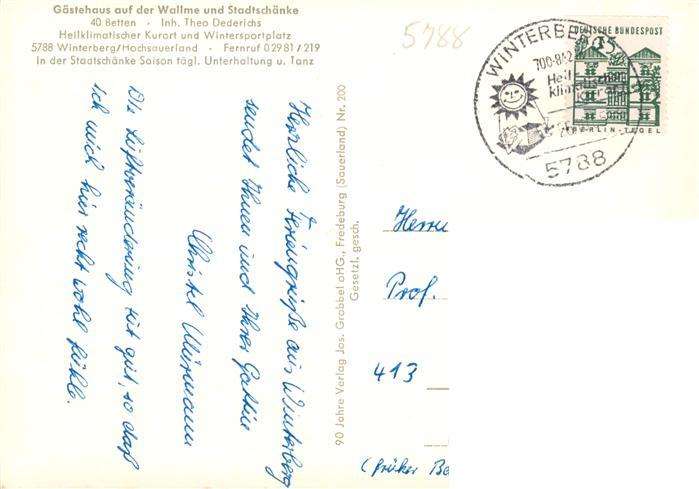 Gästehaus auf der Wallme und Stadtschänke
40 Betten · Inh. Theo Dederichs
Heilklimatischer Kurort und Wintersportplatz
5788 Winterberg/Hochsauerland · Fernruf 02981/219
In der Staatschänke Saison tägl. Unterhaltung u. Tanz
5788
WINTERBE
700-
Heil
klimatischer
Kurort
5788
DEUTSCHE BUNDESPOST
15
BERLIN-TEGEL
Herzliche Feriengrüße aus Winterberg
sendet Ihnen und Ihrer Gattin
Christel
Die Luftveränderung tut gut, so daß
ich mich hier recht wohl fühle.
90 Jahre Verlag Jos. Grobbel oHG., Fredeburg (Sauerland) Nr. 200
Gesetzl. gesch.
Herrn
Prof.
413
(früher Be